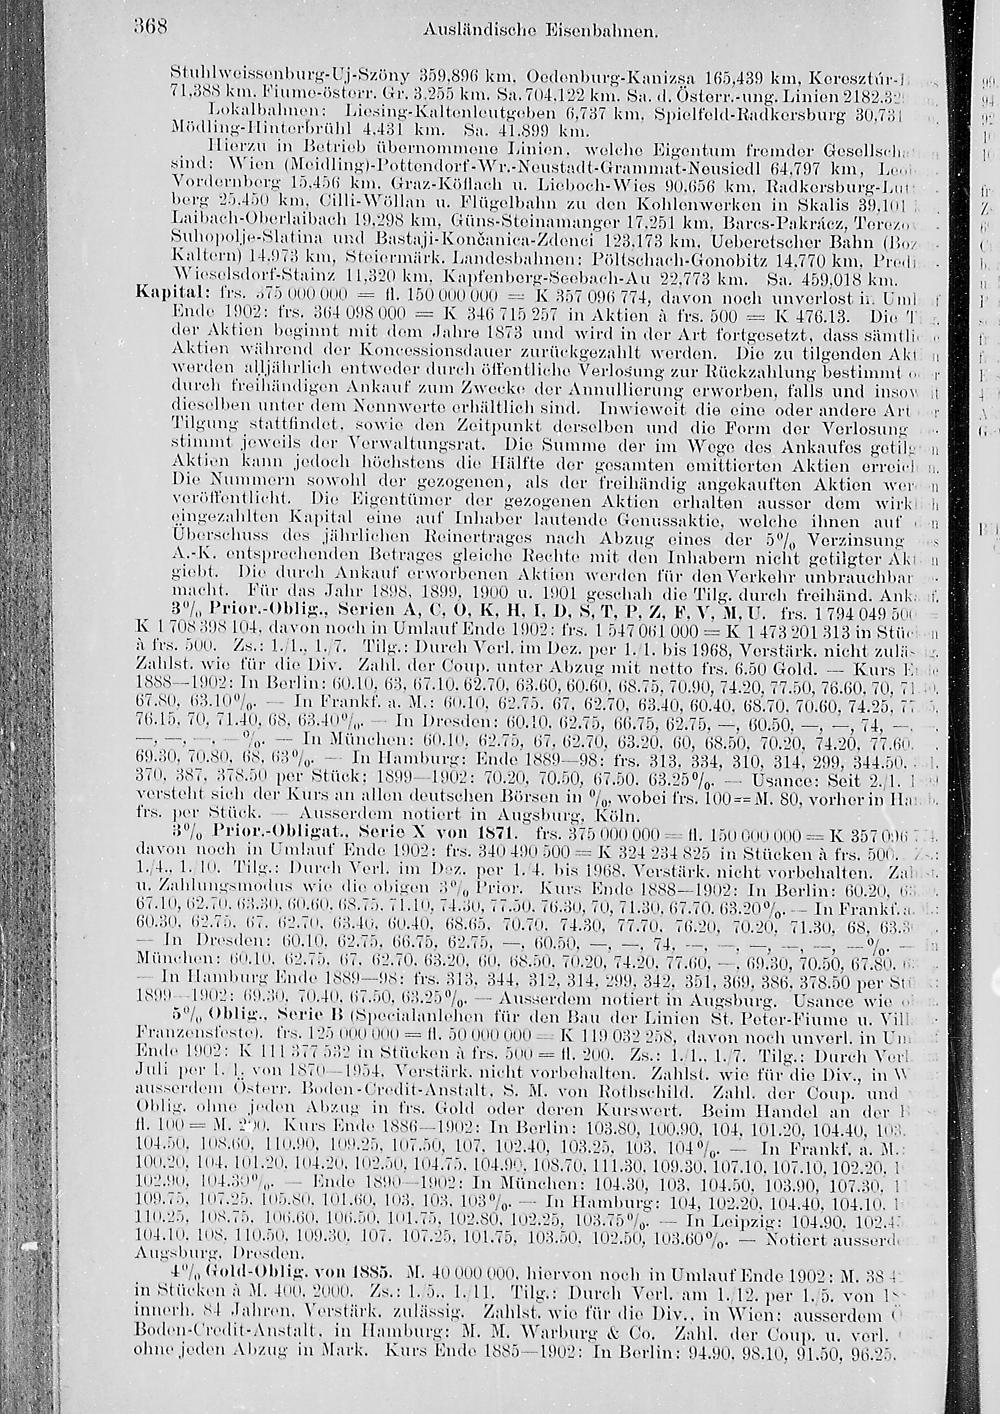 368 Ausländische Eisenbahnen.
Stuhlweissenburg-Uj-Szöny 359,896 km, Oedenburg-Kanizsa 165,439 km, Keresztúr-
71,388 km. Fiume-österr. Gr. 3,255 km. Sa. 704,122 km. Sa. d. Österr.-ung. Linien 2182.32
Lokalbahnen: Liesing-Kaltenleutgeben 6,737 km, Spielfeld-Radkersburg 30,731
Mödling-Hinterbrühl 4,431 km. Sa. 41,899 km.
Hierzu in Betrieb übernommene Linien, welche Eigentum fremder Gesellscha
sind: Wien (Meidling)-Pottendorf-Wr.-Neustadt-Grammat-Neusiedl 64,797 km, Leo
Vordernberg 15,456 km, Graz-Köflach u. Lieboch-Wies 90,656 km, Radkersburg-Lut
berg 25,450 km, Cilli-Wöllan u. Flügelbahn zu den Kohlenwerken in Skalis 39,101
Laibach-Oberlaibach 19,298 km, Güns-Steinamanger 17,251 km, Barcs-Pakrácz, Terezov
Suhopolje-Slatina und Bastaji-Končanica-Zdenci 123,173 km, Ueberetscher Bahn (Boz
Kaltern) 14,973 km, Steiermärk. Landesbahnen: Pöltschach-Gonobitz 14,770 km, Predi
Wieselsdorf-Stainz 11,320 km, Kapfenberg-Seebach-Au 22,773 km. Sa. 459,018 km.
Kapital: frs. 375 000 000 = fl. 150 000 000 = K 357 096 774, davon noch unverlost in Uml
Ende 1902: frs. 364 098 000 = K 346 715 257 in Aktien à frs. 500 = K 476.13. Die T
der Aktien beginnt mit dem Jahre 1873 und wird in der Art fortgesetzt, dass sämtli
Aktien während der Koncessionsdauer zurückgezahlt werden. Die zu tilgenden Akt
werden alljährlich entweder durch öffentliche Verlosung zur Rückzahlung bestimmt o
durch freihändigen Ankauf zum Zwecke der Annullierung erworben, falls und insow
dieselben unter dem Nennwerte erhältlich sind. Inwieweit die eine oder andere Art
Tilgung stattfindet, sowie den Zeitpunkt derselben und die Form der Verlosung
stimmt jeweils der Verwaltungsrat. Die Summe der im Wege des Ankaufes getilg
Aktien kann jedoch höchstens die Hälfte der gesamten emittierten Aktien erreich
Die Nummern sowohl der gezogenen, als der freihändig angekauften Aktien wer
veröffentlicht. Die Eigentümer der gezogenen Aktien erhalten ausser dem wirk
eingezahlten Kapital eine auf Inhaber lautende Genussaktie, welche ihnen auf
Überschuss des jährlichen Reinertrages nach Abzug eines der 5% Verzinsung
A.-K. entsprechenden Betrages gleiche Rechte mit den Inhabern nicht getilgter Akt
giebt. Die durch Ankauf erworbenen Aktien werden für den Verkehr unbrauchbar
macht. Für das Jahr 1898, 1899, 1900 u. 1901 geschah die Tilg. durch freihänd. Ank
3% Prior.-Oblig., Serien A, C, O, K, H, I, D, S, T, P, Z, F, V, M, U. frs. 1 794 049 500
K 1 708 398 104, davon noch in Umlauf Ende 1902: frs. 1 547 061 000 = K 1 473 201 313 in Stüc
à frs. 500. Zs.: 1./1., 1./7. Tilg.: Durch Verl. im Dez. per 1./1. bis 1968, Verstärk. nicht zulä
Zahlst. wie für die Div. Zahl. der Coup. unter Abzug mit netto frs. 6.50 Gold. — Kurs E
1888—1902: In Berlin: 60.10, 63, 67.10, 62.70, 63.60, 60.60, 68.75, 70.90, 74.20, 77.50, 76.60, 70, 71
67.80, 63.10%. — In Frankf. a. M.: 60.10, 62.75, 67, 62.70, 63.40, 60.40, 68.70, 70.60, 74.25, 77
76.15, 70, 71.40, 68, 63.40%. — In Dresden: 60.10, 62.75, 66.75, 62.75, —, 60.50, —, —, 74, —
—, —, —, —%. — In München: 60.10, 62.75, 67, 62.70, 63.20, 60, 68.50, 70.20, 74.20, 77.60,
69.30, 70.80, 68, 63%. — In Hamburg: Ende 1889—98: frs. 313, 334, 310, 314, 299, 344.50,
370, 387, 378.50 per Stück; 1899—1902: 70.20, 70.50, 67.50, 63.25%. — Usance: Seit 2./1. 1
versteht sich der Kurs an allen deutschen Börsen in %, wobei frs. 100 = M. 80, vorher in Ha
frs. per Stück. — Ausserdem notiert in Augsburg, Köln.
3% Prior.-Obligat., Serie X von 1871. frs. 375 000 000 = fl. 150 000 000 = K 357 096
davon noch in Umlauf Ende 1902: frs. 340 490 500 = K 324 234 825 in Stücken à frs. 500. Zs.:
1./4., 1./10. Tilg.: Durch Verl. im Dez. per 1./4. bis 1968, Verstärk. nicht vorbehalten. Zahlst.
u. Zahlungsmodus wie die obigen 3% Prior. Kurs Ende 1888—1902: In Berlin: 60.20, 63
67.10, 62.70, 63.30, 60.60, 68.75, 71.10, 74.30, 77.50, 76.30, 70, 71.30, 67.70, 63.20%. — In Frankf. a.
60.30, 62.75, 67, 62.70, 63.40, 60.40, 68.65, 70.70, 74.30, 77.70, 76.20, 70.20, 71.30, 68, 63.3
— In Dresden: 60.10, 62.75, 66.75, 62.75, —, 60.50, —, —, 74, —, —, —, —, —, —%. —
München: 60.10, 62.75, 67, 62.70, 63.20, 60, 68.50, 70.20, 74.20, 77.60, —, 69.30, 70.50, 67.80,
— In Hamburg Ende 1889—98: frs. 313, 344, 312, 314, 299, 342, 351, 369, 386, 378.50 per St
1899—1902: 69.30, 70.40, 67.50, 63.25%. — Ausserdem notiert in Augsburg. Usance wie o
5% Oblig., Serie B (Specialanlehen für den Bau der Linien St. Peter-Fiume u. Vill
Franzensfeste). frs. 125 000 000 = fl. 50 000 000 = K 119 032 258, davon noch unverl. in Um
Ende 1902: K 111 377 532 in Stücken à frs. 500 = fl. 200. Zs.: 1./1., 1./7. Tilg.: Durch Verl
Juli per 1./1. von 1870—1954, Verstärk. nicht vorbehalten. Zahlst. wie für die Div., in W
ausserdem Österr. Boden-Credit-Anstalt, S. M. von Rothschild. Zahl. der Coup. und
Oblig. ohne jeden Abzug in frs. Gold oder deren Kurswert. Beim Handel an der B
fl. 100 = M. 200. Kurs Ende 1886—1902: In Berlin: 103.80, 100.90, 104, 101.20, 104.40, 103.
104.50, 108.60, 110.90, 109.25, 107.50, 107, 102.40, 103.25, 103, 104%. — In Frankf. a. M.:
100.20, 104, 101.20, 104.20, 102.50, 104.75, 104.90, 108.70, 111.30, 109.30, 107.10, 107.10, 102.20, 1
102.90, 104.30%. — Ende 1890—1902: In München: 104.30, 103, 104.50, 103.90, 107.30, 1
109.75, 107.25, 105.80, 101.60, 103, 103, 103%. — In Hamburg: 104, 102.20, 104.40, 104.10,
110.25, 108.75, 106.60, 106.50, 101.75, 102.80, 102.25, 103.75%. — In Leipzig: 104.90, 102.4
104.10, 108, 110.50, 109.30, 107, 107.25, 101.75, 103.50, 102.50, 103.60%. — Notiert ausserd
Augsburg, Dresden.
4% Gold-Oblig. von 1885. M. 40 000 000, hiervon noch in Umlauf Ende 1902: M. 38 4
in Stücken à M. 400, 2000. Zs.: 1./5., 1./11. Tilg.: Durch Verl. am 1./12. per 1./5. von 18
innerh. 84 Jahren, Verstärk. zulässig. Zahlst. wie für die Div., in Wien: ausserdem Ö
Boden-Credit-Anstalt, in Hamburg: M. M. Warburg & Co. Zahl. der Coup. u. verl.
ohne jeden Abzug in Mark. Kurs Ende 1885—1902: In Berlin: 94.90, 98.10, 91.50, 96.25,